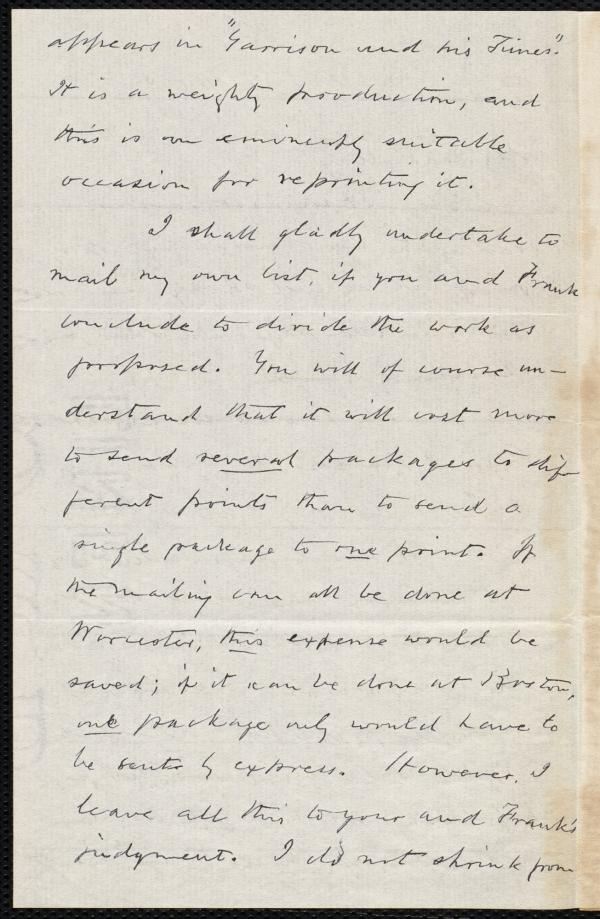 appears in "Garrison and his Times".
It is a weighty production, and
this is an eminently suitable
occasion for reprinting it.
I shall gladly undertake to
mail my own list, if you and Frank
conclude to divide the work as
proposed. You will of course un-
derstand that it will cost more
to send several packages to dif-
ferent points than to send a
single package to one point. If
the mailing can all be done at
Worcester, this expense would be
saved; if it can be done at Boston,
one package only would have to
be sent by express. However, I
leave all this to your and Frank's
judgment. I do not shrink from